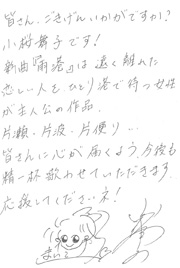 皆さん、ごきげんいかがですか?
小村舞子です!
新曲『雨港』は遠く離れた
恋しい人を、ひとり港で待つ女性
が主人公の作品。
片瀬・片波・片便り…
皆さんに心が届くよう、今後も
精一杯歌わせていただきます。
応援してくださいネ!
まいこ